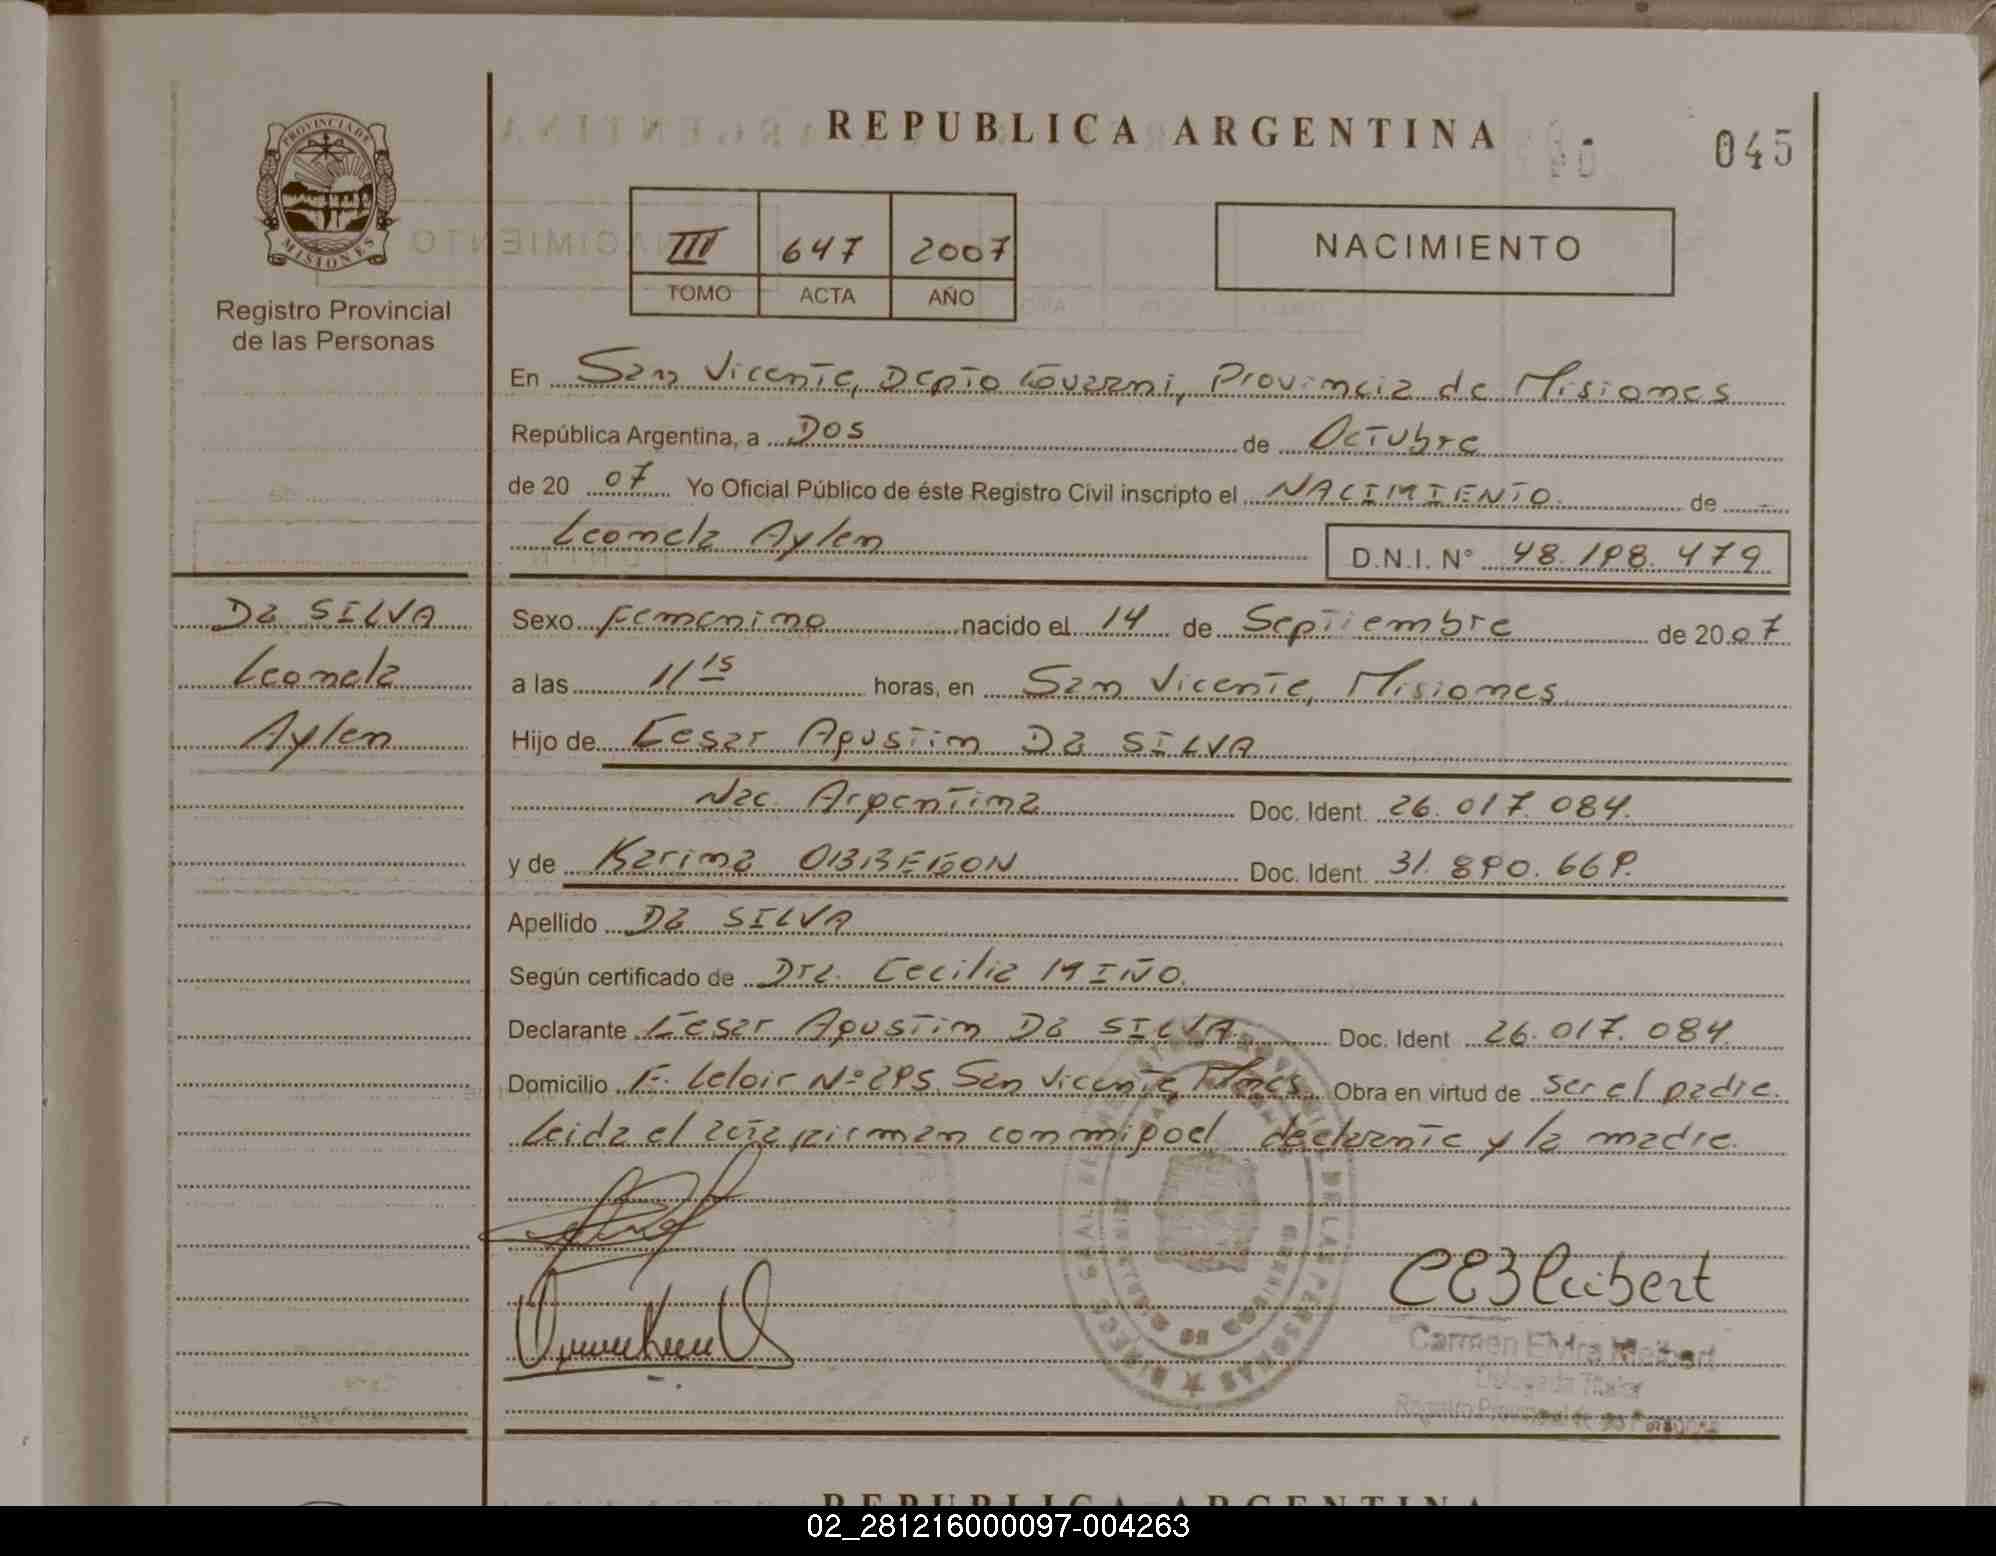 PROVINCIA DE
MISIONES
Registro Provincial
de las Personas
REPUBLICA ARGENTINA
045
III 647 2007
TOMO ACTA AÑO
NACIMIENTO
En San Vicente, Depto Guarani, Provincia de Misiones
República Argentina, a Dos de Octubre
de 20 07 Yo Oficial Público de éste Registro Civil inscripto el NACIMIENTO. de -
Leonela Aylen
D.N.I. N° 48.198.479
Da SILVA
Leonela
Aylen
Sexo Femenino nacido el 14 de Septiembre de 2007
a las 11 15 horas, en San Vicente, Misiones
Hijo de Cesar Agustin Da SILVA
Nac. Argentina Doc. Ident. 26.017.084.
y de Karina OBREGON Doc. Ident. 31.890.669.
Apellido Da SILVA
Según certificado de Dra. Cecilia MIÑO.
Declarante Cesar Agustin Da SILVA Doc. Ident 26.017.084
Domicilio F. Leloir N° 295 San Vicente Mnes Obra en virtud de ser el padre.
Leida el acta firman conmigo el declarante y la madre.
Carmen Elvira
Delegada Titular
Registro Provincial de las Personas
REPUBLICA ARGENTINA
02_281216000097-004263